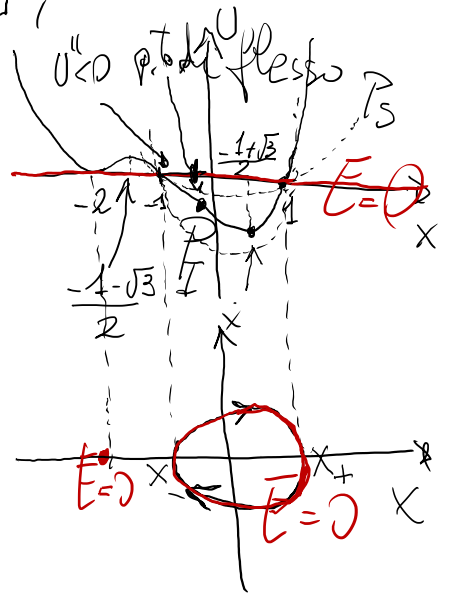 U
U''<0 p.ti di flesso
P_S
\frac{-1+\sqrt{3}}{2}
E=0
-2 -1 1
X
P_I
\frac{-1-\sqrt{3}}{2}
ẋ
E=0 X_- X_+
E=0 X